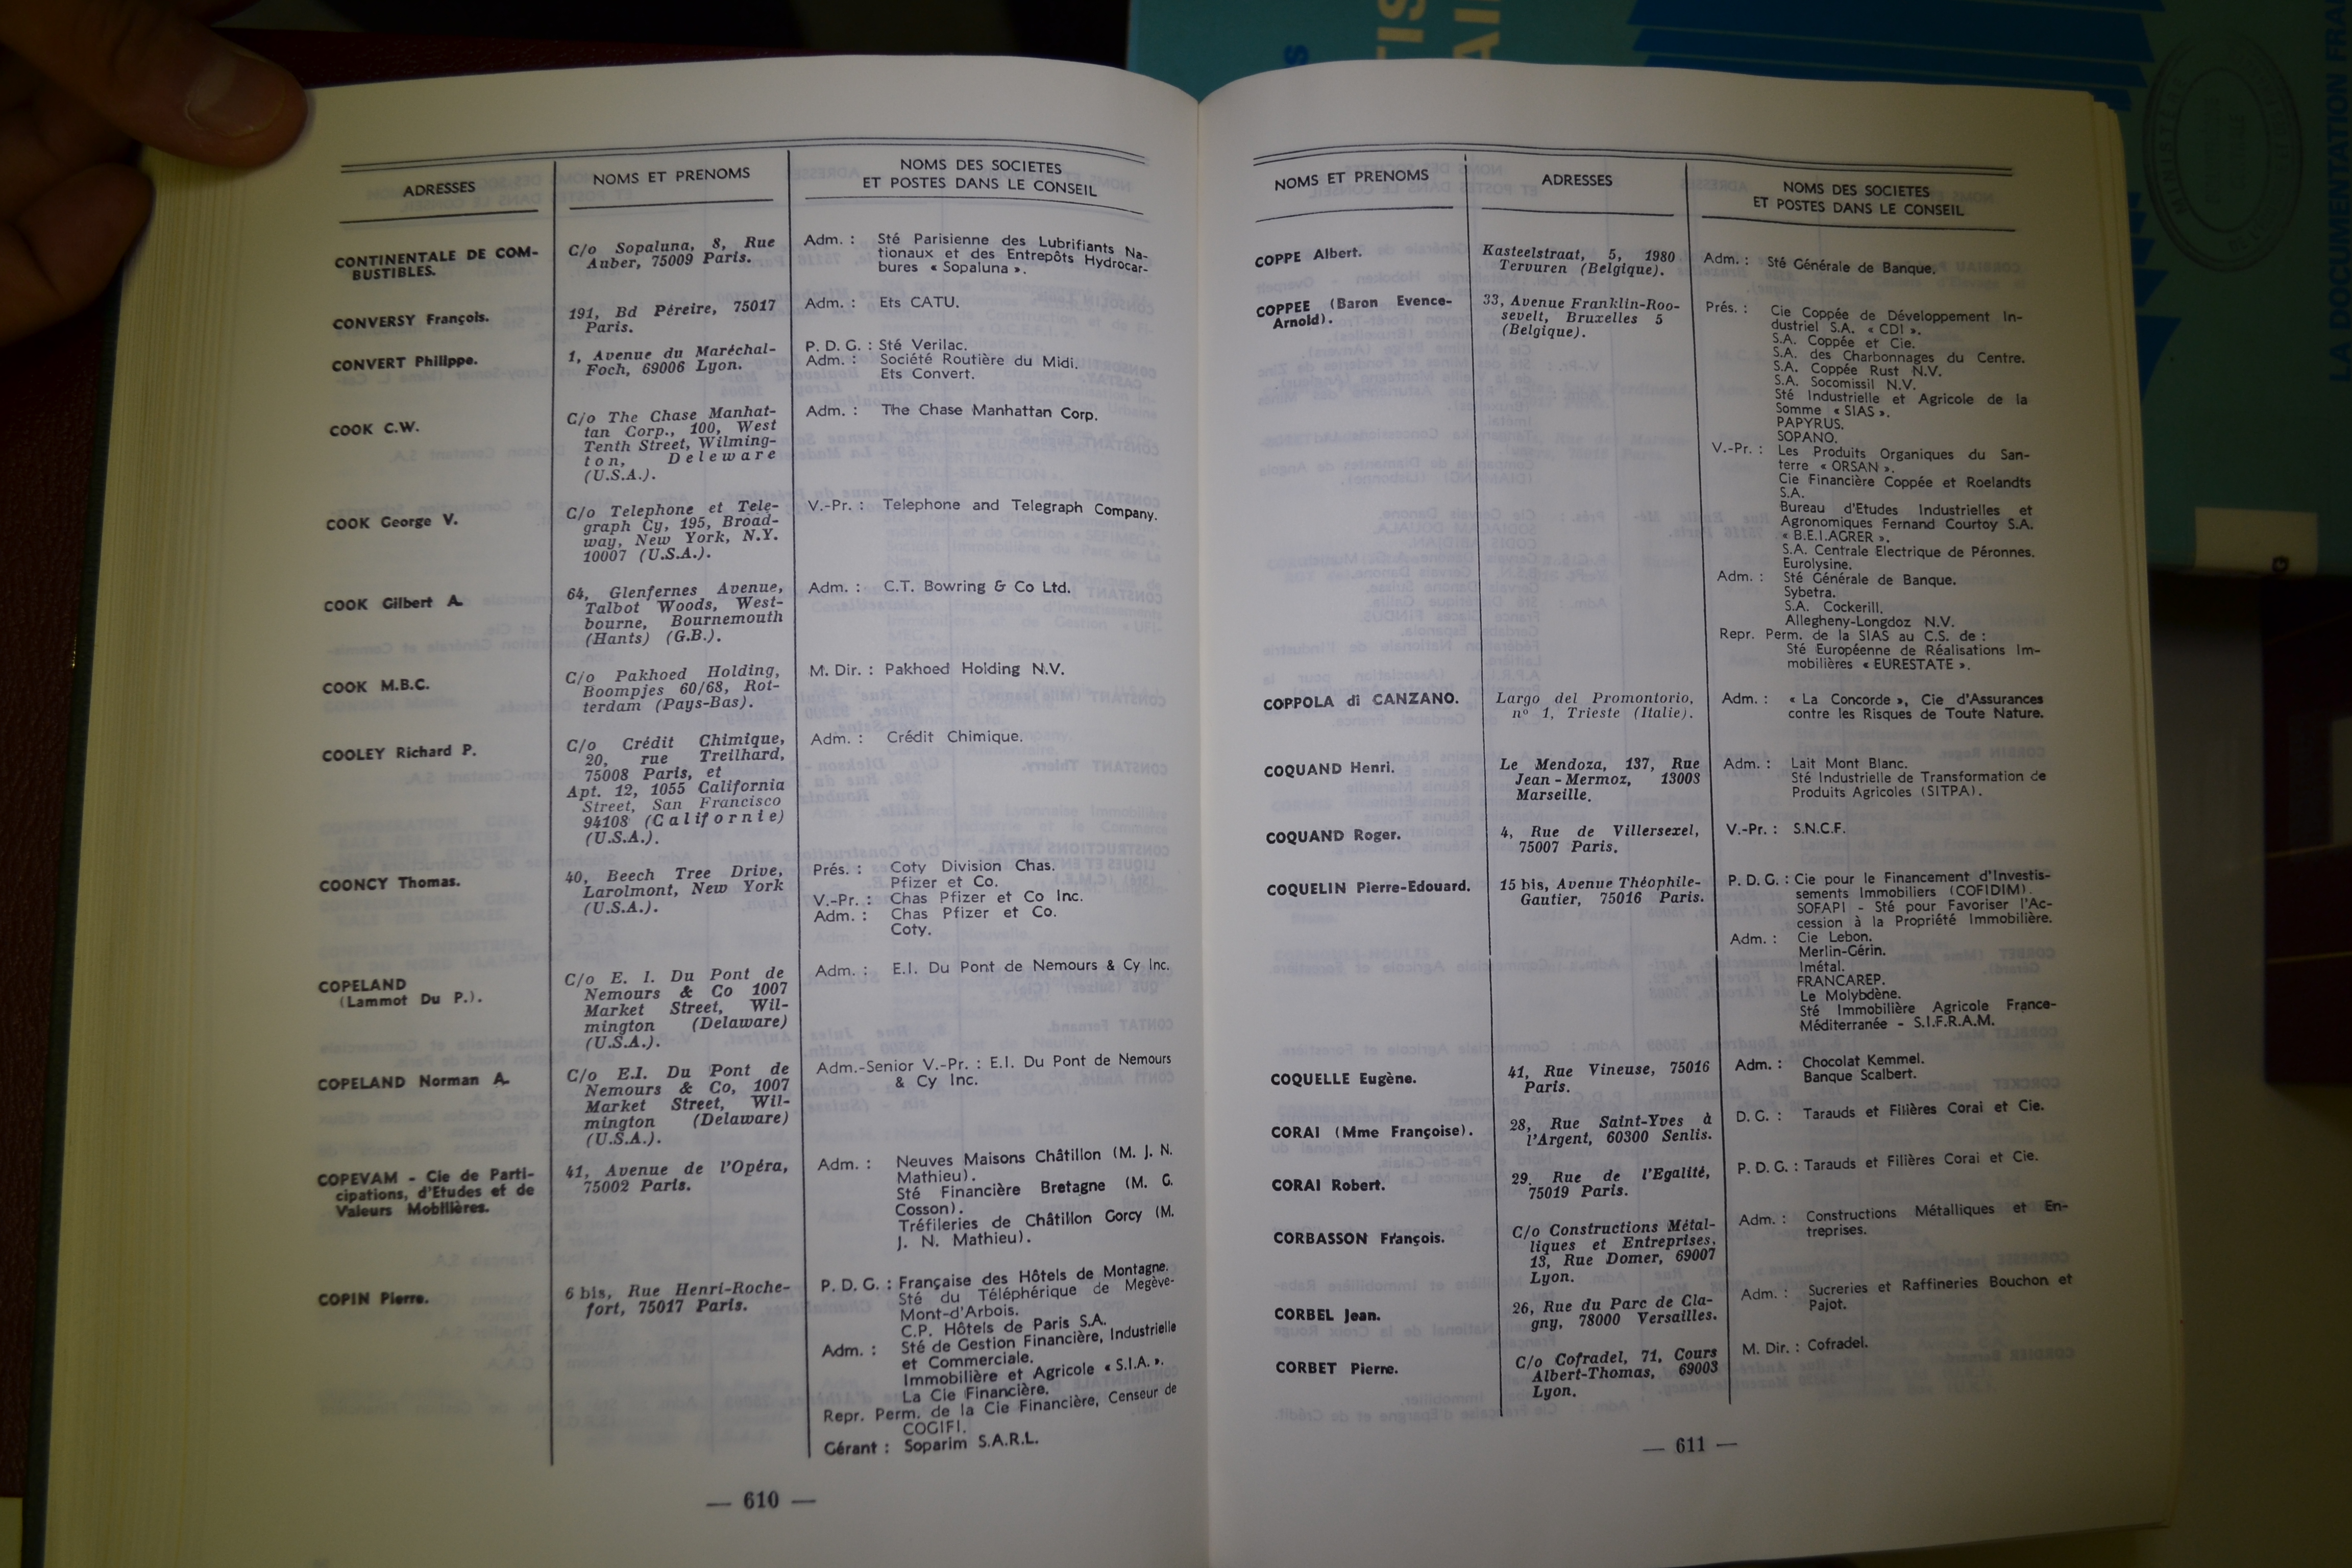 ADRESSES
NOMS ET PRENOMS
NOMS DES SOCIETES
ET POSTES DANS LE CONSEIL
CONTINENTALE DE COM-
BUSTIBLES.
C/o Sopaluna, 8, Rue
Auber, 75009 Paris.
Adm. : Sté Parisienne des Lubrifiants Na-
tionaux et des Entrepôts Hydrocar-
bures « Sopaluna ».
CONVERSY François.
191, Bd Péreire, 75017
Paris.
Adm. : Ets CATU.
CONVERT Philippe.
1, Avenue du Maréchal-
Foch, 69006 Lyon.
P. D. G. : Sté Verilac.
Adm. : Société Routière du Midi.
Ets Convert.
COOK C.W.
C/o The Chase Manhat-
tan Corp., 100, West
Tenth Street, Wilming-
ton, Deleware
(U.S.A.).
Adm. : The Chase Manhattan Corp.
COOK George V.
C/o Telephone et Tele-
graph Cy, 195, Broad-
way, New York, N.Y.
10007 (U.S.A.).
V.-Pr. : Telephone and Telegraph Company.
COOK Gilbert A.
64, Glenfernes Avenue,
Talbot Woods, West-
bourne, Bournemouth
(Hants) (G.B.).
Adm. : C.T. Bowring & Co Ltd.
COOK M.B.C.
C/o Pakhoed Holding,
Boompjes 60/68, Rot-
terdam (Pays-Bas).
M. Dir. : Pakhoed Holding N.V.
COOLEY Richard P.
C/o Crédit Chimique,
20, rue Treilhard,
75008 Paris, et
Apt. 12, 1055 California
Street, San Francisco
94108 (Californie)
(U.S.A.).
Adm. : Crédit Chimique.
COONCY Thomas.
40, Beech Tree Drive,
Larolmont, New York
(U.S.A.).
Prés. : Coty Division Chas.
Pfizer et Co.
V.-Pr. : Chas Pfizer et Co Inc.
Adm. : Chas Pfizer et Co.
Coty.
COPELAND
(Lammot Du P.).
C/o E. I. Du Pont de
Nemours & Co 1007
Market Street, Wil-
mington (Delaware)
(U.S.A.).
Adm. : E.I. Du Pont de Nemours & Cy Inc.
COPELAND Norman A.
C/o E.I. Du Pont de
Nemours & Co, 1007
Market Street, Wil-
mington (Delaware)
(U.S.A.).
Adm.-Senior V.-Pr. : E.I. Du Pont de Nemours
& Cy Inc.
COPEVAM - Cie de Parti-
cipations, d'Etudes et de
Valeurs Mobilières.
41, Avenue de l'Opéra,
75002 Paris.
Adm. : Neuves Maisons Châtillon (M. J. N.
Mathieu).
Sté Financière Bretagne (M. G.
Cosson).
Tréfileries de Châtillon Gorcy (M.
J. N. Mathieu).
COPIN Pierre.
6 bis, Rue Henri-Roche-
fort, 75017 Paris.
P. D. G. : Française des Hôtels de Montagne.
Sté du Téléphérique de Megève-
Mont-d'Arbois.
C.P. Hôtels de Paris S.A.
Adm. : Sté de Gestion Financière, Industrielle
et Commerciale.
Immobilière et Agricole « S.I.A. ».
La Cie Financière.
Repr. Perm. de la Cie Financière, Censeur de
COGIFI.
Gérant : Soparim S.A.R.L.
— 610 —
NOMS ET PRENOMS
ADRESSES
NOMS DES SOCIETES
ET POSTES DANS LE CONSEIL
COPPE Albert.
Kasteelstraat, 5, 1980
Tervuren (Belgique).
Adm. : Sté Générale de Banque.
COPPEE (Baron Evence-
Arnold).
33, Avenue Franklin-Roo-
sevelt, Bruxelles 5
(Belgique).
Prés. : Cie Coppée de Développement In-
dustriel S.A. « CDI ».
S.A. Coppée et Cie.
S.A. des Charbonnages du Centre.
S.A. Coppée Rust N.V.
S.A. Socomissil N.V.
Sté Industrielle et Agricole de la
Somme « SIAS ».
PAPYRUS.
SOPANO.
V.-Pr. : Les Produits Organiques du San-
terre « ORSAN ».
Cie Financière Coppée et Roelandts
S.A.
Bureau d'Etudes Industrielles et
Agronomiques Fernand Courtoy S.A.
« B.E.I.AGRER ».
S.A. Centrale Electrique de Péronnes.
Eurolysine.
Adm. : Sté Générale de Banque.
Sybetra.
S.A. Cockerill.
Allegheny-Longdoz N.V.
Repr. Perm. de la SIAS au C.S. de :
Sté Européenne de Réalisations Im-
mobilières « EURESTATE ».
COPPOLA di CANZANO.
Largo del Promontorio,
nº 1, Trieste (Italie).
Adm. : « La Concorde », Cie d'Assurances
contre les Risques de Toute Nature.
COQUAND Henri.
Le Mendoza, 137, Rue
Jean-Mermoz, 13008
Marseille.
Adm. : Lait Mont Blanc.
Sté Industrielle de Transformation de
Produits Agricoles (SITPA).
COQUAND Roger.
4, Rue de Villersexel,
75007 Paris.
V.-Pr. : S.N.C.F.
COQUELIN Pierre-Edouard.
15 bis, Avenue Théophile-
Gautier, 75016 Paris.
P. D. G. : Cie pour le Financement d'Investis-
sements Immobiliers (COFIDIM).
SOFAPI - Sté pour Favoriser l'Ac-
cession à la Propriété Immobilière.
Adm. : Cie Lebon.
Merlin-Gérin.
Imétal.
FRANCAREP.
Le Molybdène.
Sté Immobilière Agricole France-
Méditerranée - S.I.F.R.A.M.
COQUELLE Eugène.
41, Rue Vineuse, 75016
Paris.
Adm. : Chocolat Kemmel.
Banque Scalbert.
CORAI (Mme Françoise).
28, Rue Saint-Yves à
l'Argent, 60300 Senlis.
D. G. : Tarauds et Filières Corai et Cie.
CORAI Robert.
29, Rue de l'Egalité,
75019 Paris.
P. D. G. : Tarauds et Filières Corai et Cie.
CORBASSON François.
C/o Constructions Métal-
liques et Entreprises,
13, Rue Domer, 69007
Lyon.
Adm. : Constructions Métalliques et En-
treprises.
CORBEL Jean.
26, Rue du Parc de Cla-
gny, 78000 Versailles.
Adm. : Sucreries et Raffineries Bouchon et
Pajot.
CORBET Pierre.
C/o Cofradel, 71, Cours
Albert-Thomas, 69003
Lyon.
M. Dir. : Cofradel.
— 611 —
LA DOCUMENTATION FRA